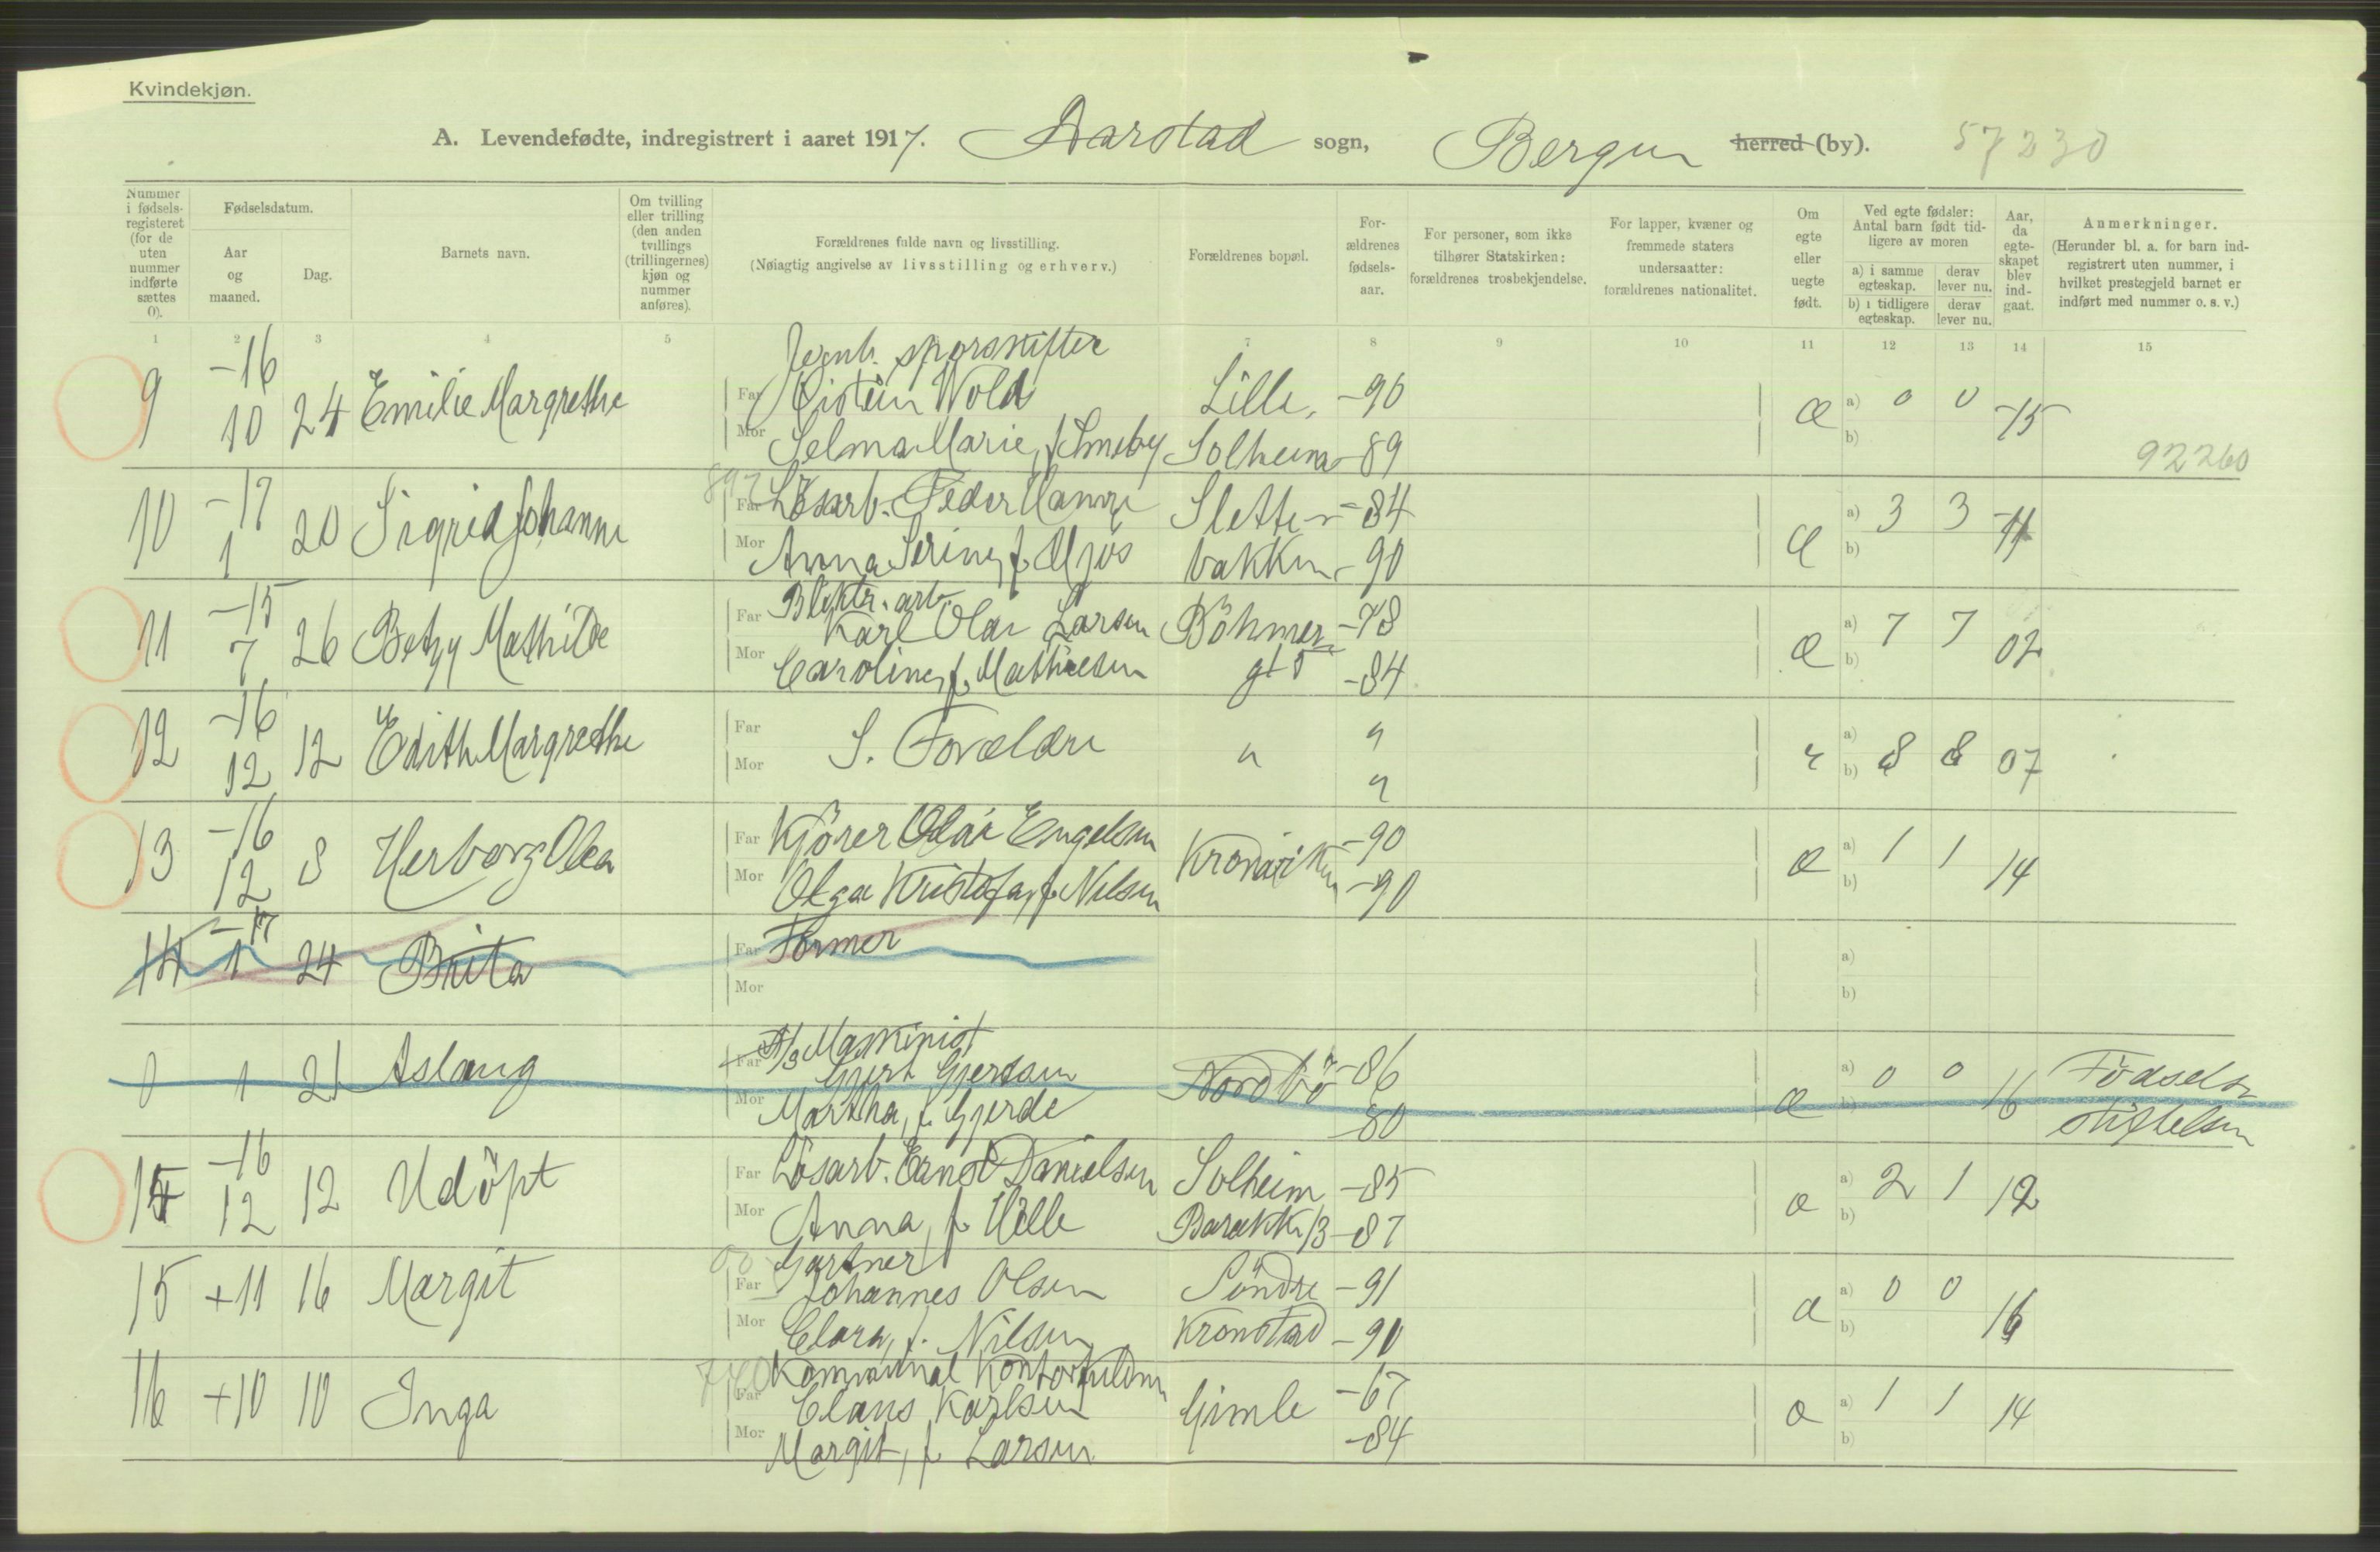 Kvindekjøn.
A. Levendefødte, indregistrert i aaret 1917. Aarstad sogn, Bergen herred (by). 57230
Nummer i fødselsregisteret (for de uten nummer indførte sættes 0).
Fødselsdatum.
Aar og maaned.
Dag.
Barnets navn.
Om tvilling eller trilling (den anden tvillings (trillingernes) kjøn og nummer anføres).
Forældrenes fulde navn og livsstilling.
(Nøiagtig angivelse av livsstilling og erhverv.)
Forældrenes bopæl.
Forældrenes fødselsaar.
For personer, som ikke tilhører Statskirken: forældrenes trosbekjendelse.
For lapper, kvæner og fremmede staters undersaatter: forældrenes nationalitet.
Om egte eller uegte født.
Ved egte fødsler: Antal barn født tidligere av moren
a) i samme egteskap. derav lever nu.
b) i tidligere egteskap. derav lever nu.
Aar, da egteskapet blev indgaat.
Anmerkninger.
(Herunder bl. a. for barn indregistrert uten nummer, i hvilket prestegjeld barnet er indført med nummer o. s. v.)
1 2 3 4 5 7 8 9 10 11 12 13 14 15
Jernb. sporskifter
9 -16 10 24 Emilie Margrethe Far Kristian Wold Lille -90 a) 0 0 -15
Mor Selma Marie, f. Smeby Solheim -89 b) 92260
10 -17 1 20 Sigrid Johanne Far Løsarb. Peder Hamre Slette- -84 a) 3 3 -11
Mor Anna Serine, f. Mjøs bakken -90 b)
Elektr. arb.
11 -15 7 26 Betzy Mathilde Far Karl Olai Larsen Böhmer -78 a) 7 7 02
Mor Caroline, f. Mathiesen gt 5 -84 b)
12 -16 12 12 Edith Margrethe Far Mor S. Forældre " " " a) b) 8 8 07
13 -16 12 8 Herborg Olea Far Kjörer Olai Engelsen Kronviken -90 a) 1 1 14
Mor Olga Kristofa, f. Nilsen -90 b)
14 -17 1 24 Brita Far Former a)
Mor b)
Maskinist
0 1 21 Aslaug Far Gjert Gjertsen Nordbö -86 a) 0 0 16 Födsels-
Mor Martha, f. Gjerde -80 b) stiftelsen
14 -16 12 12 Udöpt Far Lösarb. Ernst Danielsen Solheim -85 a) 2 1 12
Mor Anna, f. Hille Barakk 13 -87 b)
Gartner
15 +11 16 Margit Far Johannes Olsen Söndre -91 a) 0 0 16
Mor Clara, f. Nilsen Kronstad -90 b)
Kommunal Kontorfuldm
16 +10 10 Inga Far Claus Karlsen Gimle -67 a) 1 1 14
Mor Margit, f. Larsen -84 b)